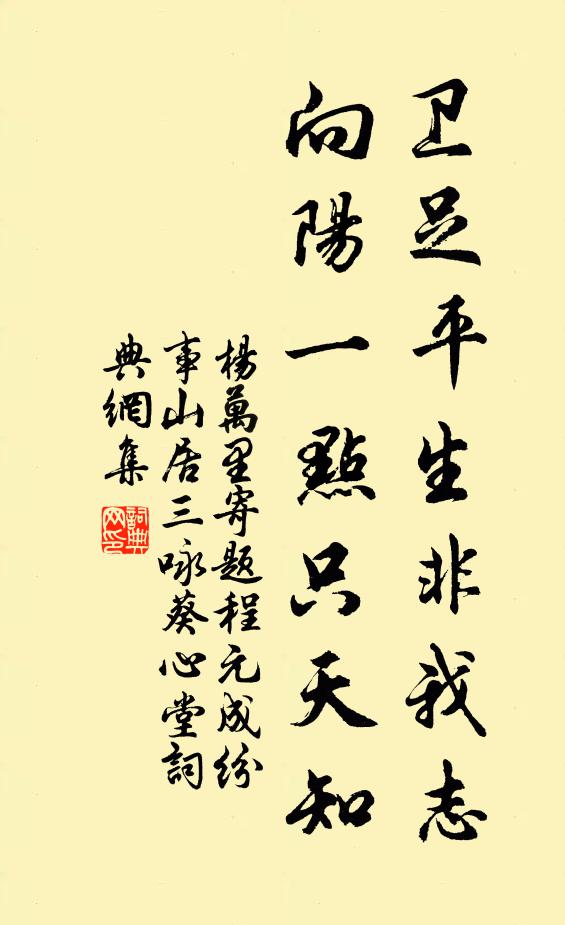 卫足平生非我志
向陽一點只天知
楊萬里寄題程元成給
事山居三咏葵心堂詞
典網集
詞典網印